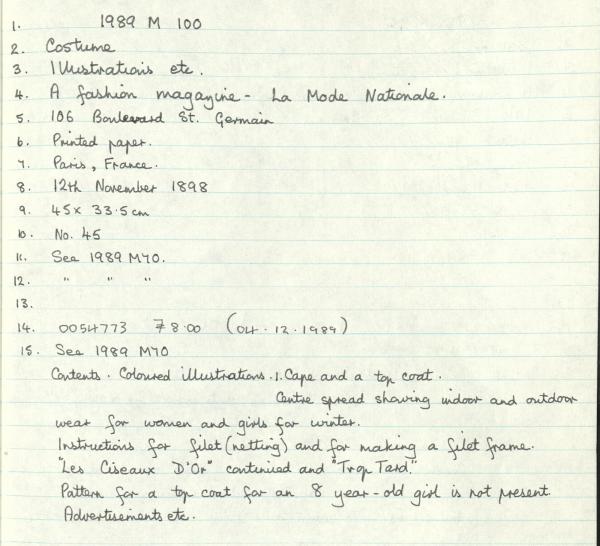 1. 1989 M 100
2. Costume
3. Illustrations etc.
4. A fashion magazine - La Mode Nationale.
5. 106 Boulevard St. Germain
6. Printed paper.
7. Paris, France.
8. 12th November 1898
9. 45 x 33.5 cm
10. No. 45
11. See 1989 M70.
12. " " "
13.
14. 0054773 78.00 (04.12.1989)
15. See 1989 M70
Contents. Coloured illustrations. 1. Cape and a top coat.
Centre spread showing indoor and outdoor
wear for women and girls for winter.
Instructions for filet (netting) and for making a filet frame.
"Les Ciseaux D'Or" continued and "Trop Tard."
Pattern for a top coat for an 8 year-old girl is not present.
Advertisements etc.